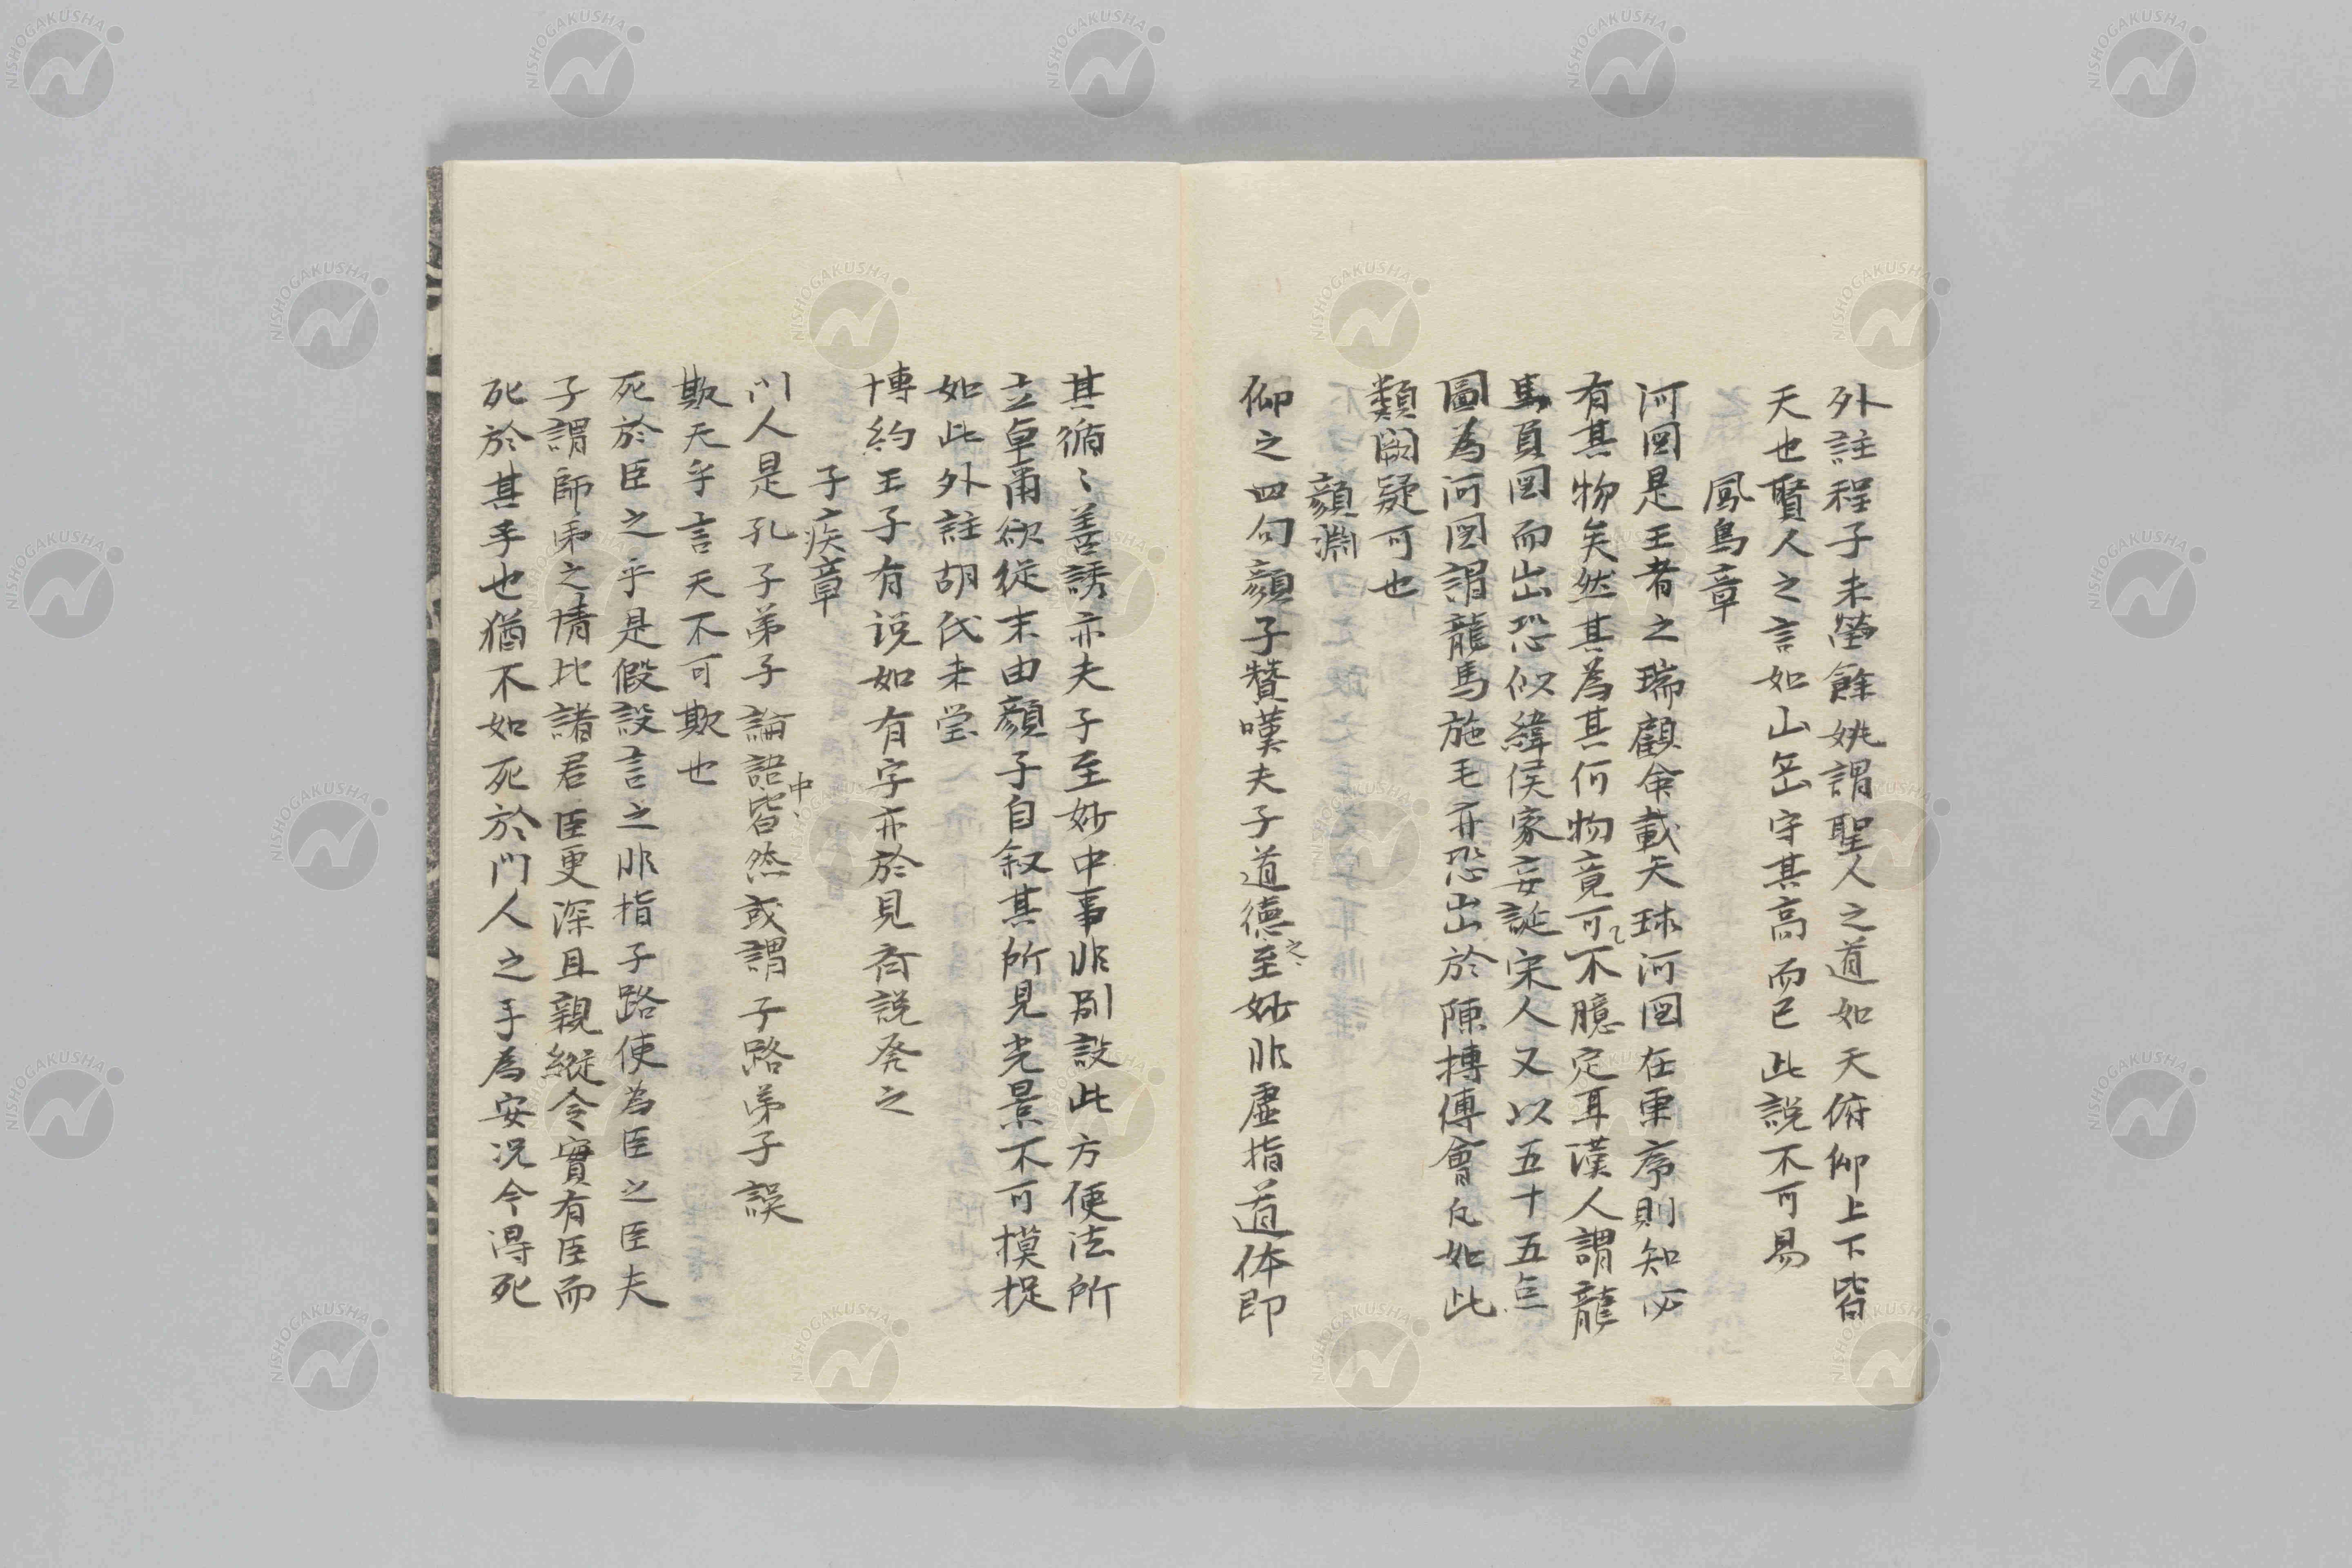 外註程子未瑩餘姚謂聖人之道如天俯仰上下皆
天也賢人之言如山岳守其高而已此説不可易
鳳鳥章
河図是王者之瑞顧命載天球河図在東序則知必
有其物矣然其為其何物竟可不臆定耳漢人謂龍
馬負図而出恐似緯侯家妄誕宋人又以五十五点
圖為河図謂龍馬施毛亦恐出於陳摶傅會凡如此
類闕疑可也
顔淵
仰之四句顔子贊嘆夫子道徳之至妙非虚指道体即
其循〻善誘亦夫子至妙中事非別設此方便法所
立卓甬欲従末由顔子自叙其所見光景不可摸捉
如此外註胡氏未莹
博約王子有说如有字亦於見斎説発之
子疾章
门人是孔子弟子論語中皆然或謂子路弟子誤
欺天乎言天不可欺也
死於臣之乎是假設言之非指子路使為臣之臣夫
子謂師弟之情比諸君臣更深且親縦令實有臣而
死於其手也猶不如死於門人之手為安况今得死
NISHOGAKUSHA